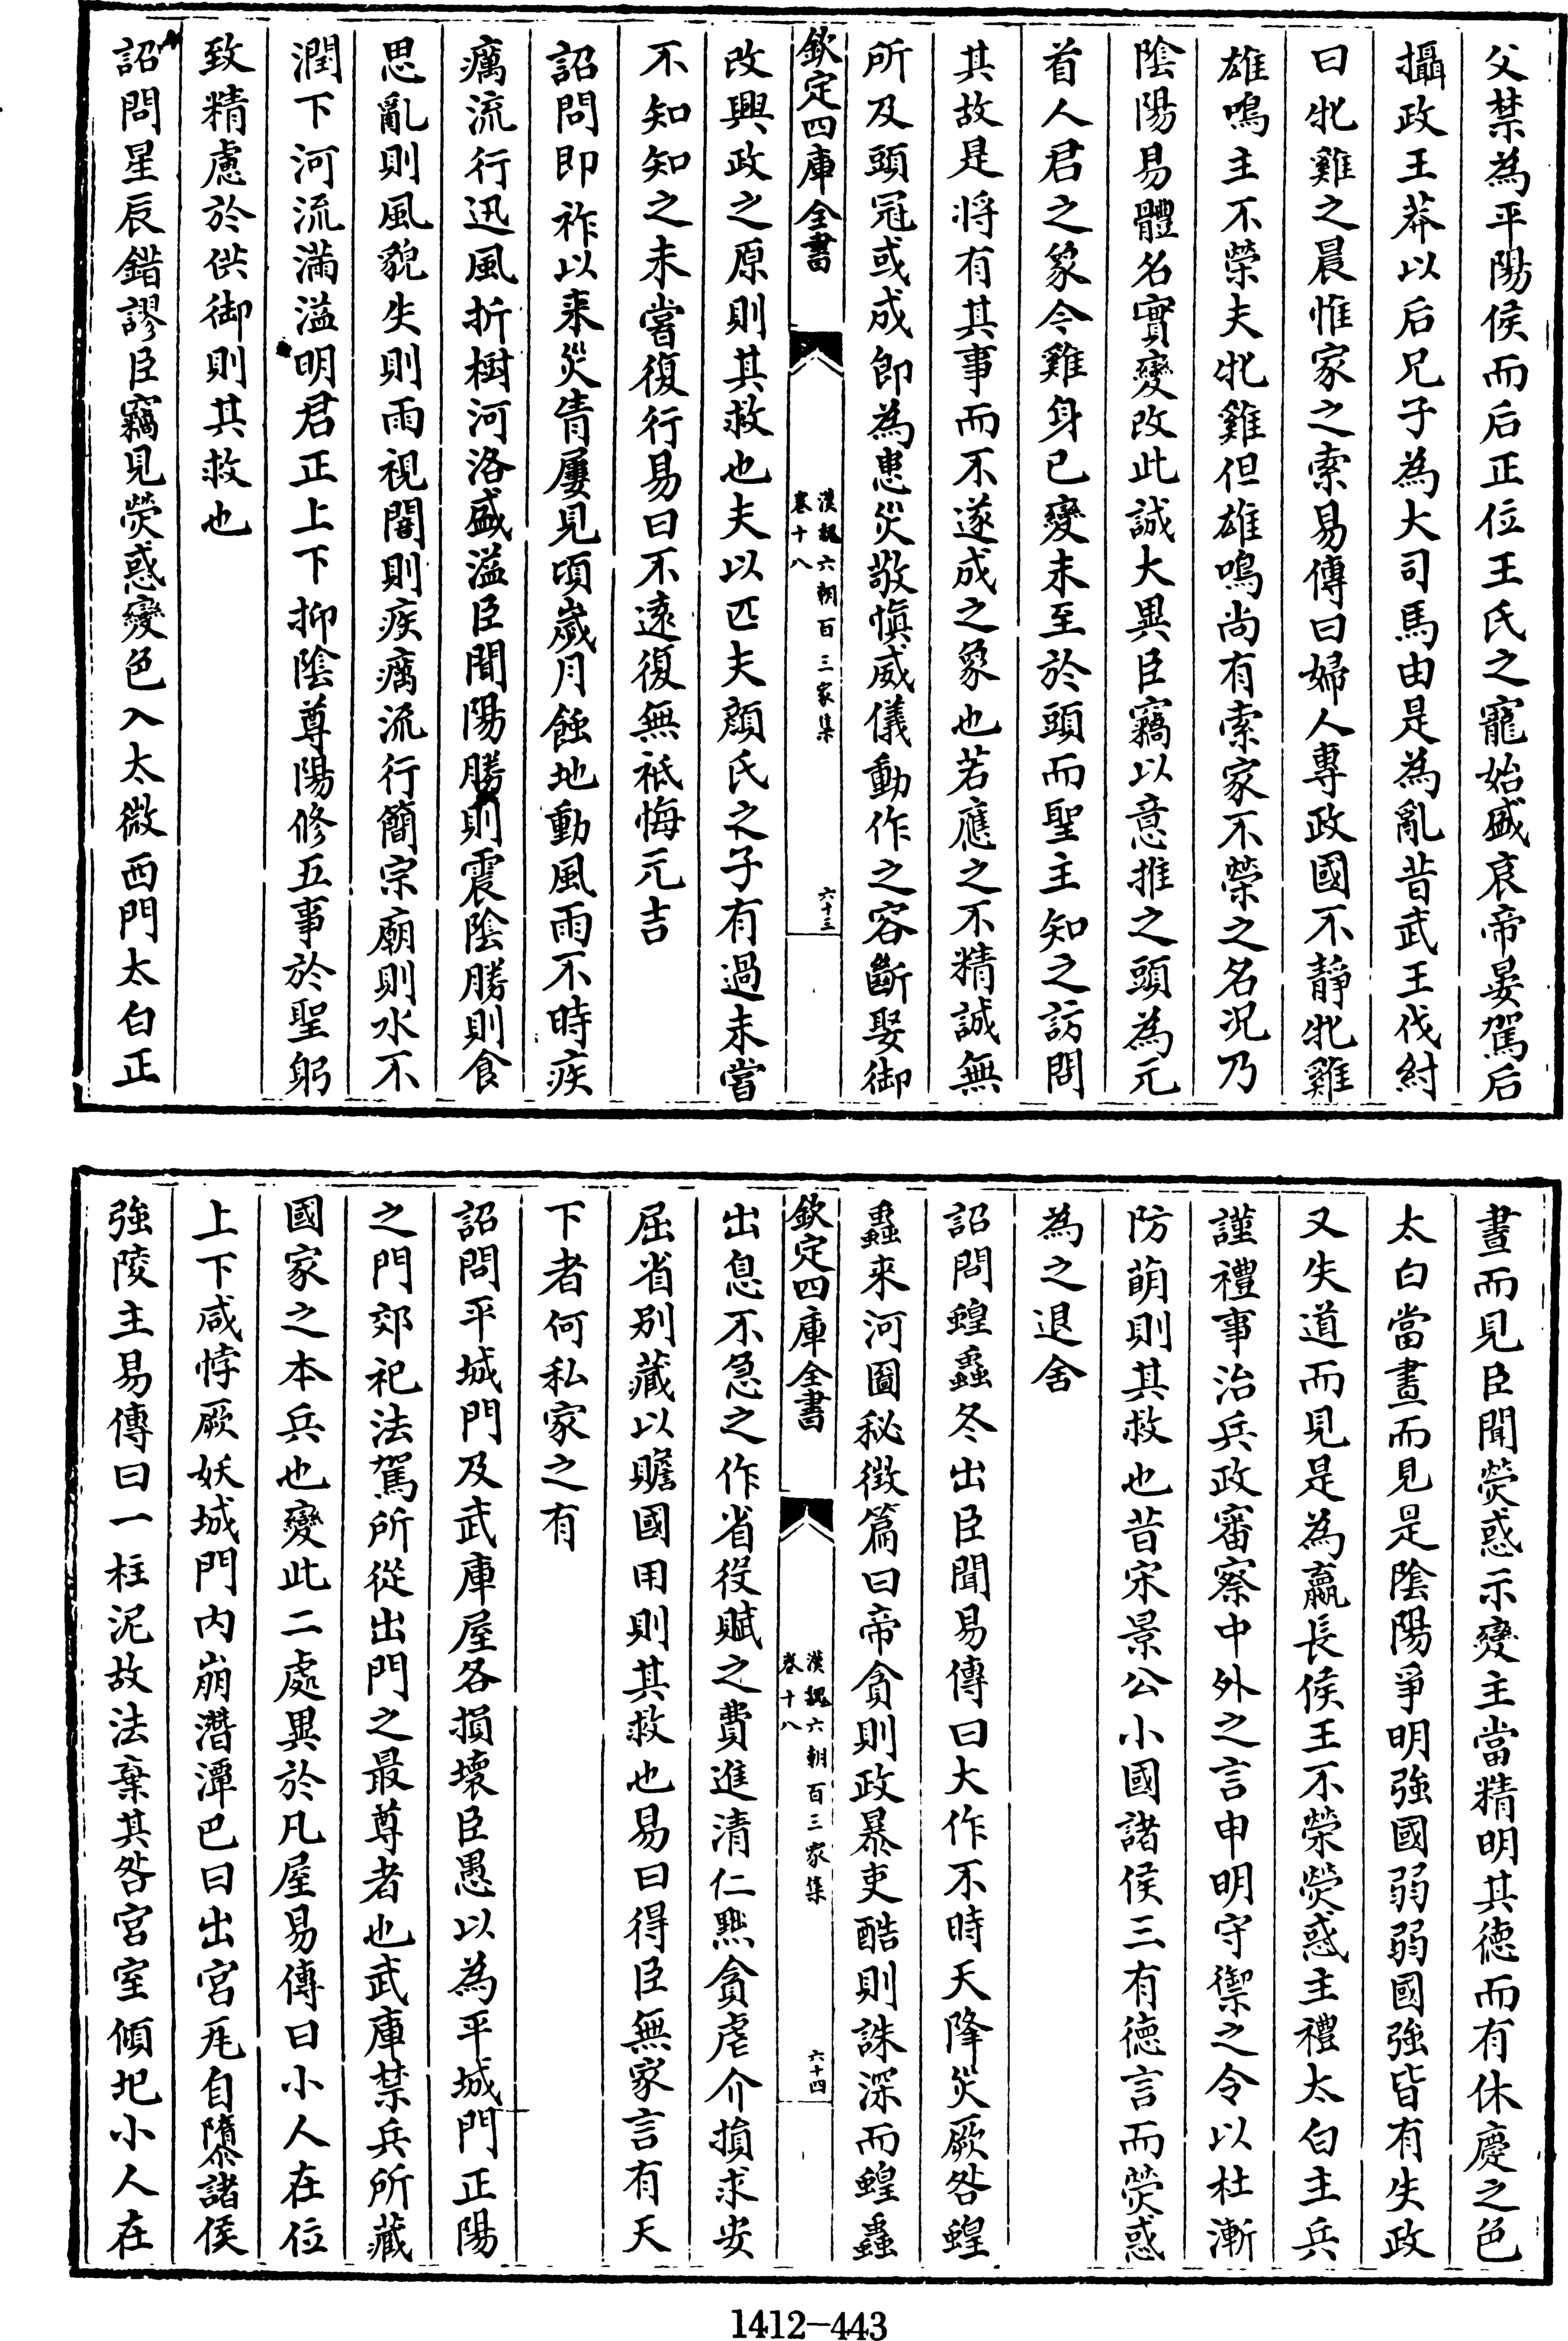 父禁為平陽侯而后正位王氏之寵始盛哀帝晏駕后
攝政王莽以后兄子為大司馬由是為亂昔武王伐紂
曰牝雞之晨惟家之索易傳曰婦人專政國不靜牝雞
雄鳴主不榮夫牝雞但雄鳴尚有索家不榮之名况乃
陰陽易體名實變改此誠大異臣竊以意推之頭為元
首人君之象今雞身已變未至於頭而聖主知之訪問
其故是将有其事而不遂成之象也若應之不精誠無
所及頭冠或成即為患災敬慎威儀動作之容斷娶御
欽定四庫全書
漢魏六朝百三家集
卷十八
六十三
改興政之原則其救也夫以匹夫顔氏之子有過未嘗
不知知之未嘗復行易曰不遠復無祗悔元吉
詔問即祚以来災眚屢見頃嵗月蝕地動風雨不時疾
癘流行迅風折樹河洛盛溢臣聞陽勝則震陰勝則食
思亂則風貌失則雨視闇則疾癘流行簡宗廟則水不
潤下河流滿溢明君正上下抑陰尊陽修五事於聖躬
致精慮於供御則其救也
詔問星辰錯謬臣竊見熒惑變色入太微西門太白正
晝而見臣聞熒惑示變主當精明其徳而有休慶之色
太白當晝而見是陰陽爭明強國弱弱國強皆有失政
又失道而見是為嬴長侯王不榮熒惑主禮太白主兵
謹禮事治兵政審察中外之言申明守禦之令以杜漸
防萌則其救也昔宋景公小國諸侯三有徳言而熒惑
為之退舍
詔問蝗蟲冬出臣聞易傳曰大作不時天降災厥咎蝗
蟲来河圖秘徴篇曰帝貪則政暴吏酷則誅深而蝗蟲
欽定四庫全書
漢魏六朝百三家集
卷十八
六十四
出息不急之作省役賦之費進清仁黜貪虐介損求安
屈省别藏以贍國用則其救也易曰得臣無家言有天
下者何私家之有
詔問平城門及武庫屋各損壞臣愚以為平城門正陽
之門郊祀法駕所從出門之最尊者也武庫禁兵所藏
國家之本兵也變此二處異於凡屋易傳曰小人在位
上下咸悖厥妖城門内崩潛潭巴曰出宮㲋自隳諸侯
強陵主易傳曰一柱泥故法棄其咎宫室傾圯小人在
1412-443